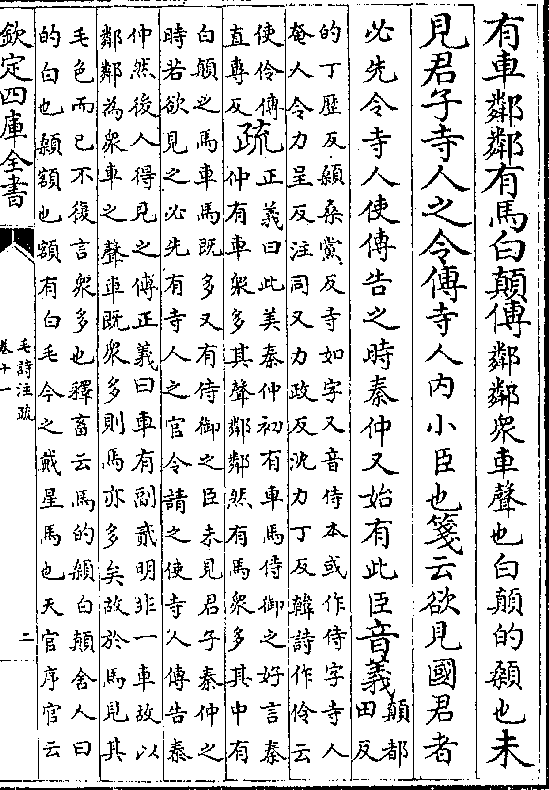 有車鄰鄰有馬白顛傳鄰鄰衆車聲也白顛的顙也未
見君子寺人之令傳寺人内小臣也箋云欲見國君者
必先令寺人使傳告之時秦仲又始有此臣音義顛都
田反
的丁歷反顙桑黨反寺如字又音侍本或作侍字寺人
奄人令力呈反注同又力政反沈力丁反韓詩作伶云
使伶傳
直專反
疏正義曰此美秦仲初有車馬侍御之好言秦
仲有車衆多其聲鄰鄰然有馬衆多其中有
白顛之馬車馬既多又有侍御之臣未見君子秦仲之
時若欲見之必先有寺人之官令請之使寺人傳告秦
仲然後人得見之傳正義曰車有副貳明非一車故以
鄰鄰為衆車之聲車既衆多則馬亦多矣故於馬見其
毛色而已不復言衆多也釋畜云馬的顙白顛舍人曰
的白也顙額也額有白毛今之戴星馬也天官序官云
欽定四庫全書
毛詩注疏
卷十一
二